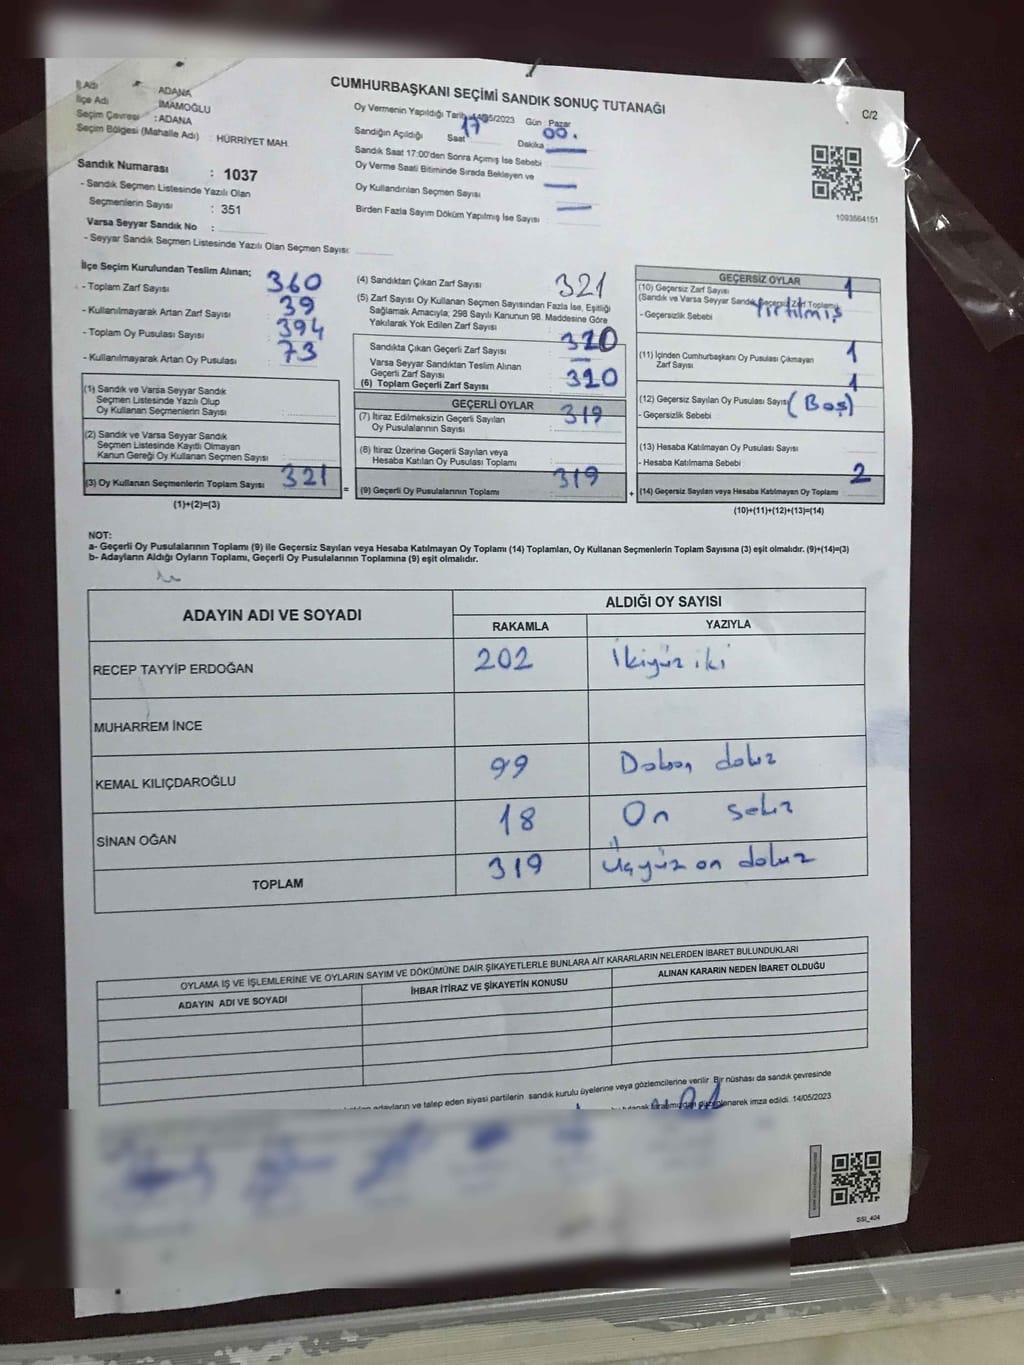 CUMHURBAŞKANI SEÇİMİ SANDIK SONUÇ TUTANAĞI
C/2
İl Adı : ADANA
İlçe Adı : İMAMOĞLU
Seçim Çevresi : ADANA
Seçim Bölgesi (Mahalle Adı) : HÜRRİYET MAH.
Sandık Numarası : 1037
- Sandık Seçmen Listesinde Yazılı Olan
Seçmenlerin Sayısı : 351
Varsa Seyyar Sandık No :
- Seyyar Sandık Seçmen Listesinde Yazılı Olan Seçmen Sayısı:
Oy Vermenin Yapıldığı Tarih 14/05/2023 Gün : Pazar
Sandığın Açıldığı Saat 17 Dakika 00.
Sandık Saat 17:00'den Sonra Açımış İse Sebebi
Oy Verme Saati Bitiminde Sırada Bekleyen ve
Oy Kullandırılan Seçmen Sayısı
Birden Fazla Sayım Döküm Yapılmış İse Sayısı :
1093564151
İlçe Seçim Kurulundan Teslim Alınan;
- Toplam Zarf Sayısı : 360
- Kullanılmayarak Artan Zarf Sayısı : 39
- Toplam Oy Pusulası Sayısı : 394
- Kullanılmayarak Artan Oy Pusulası : 73
(1) Sandık ve Varsa Seyyar Sandık
Seçmen Listesinde Yazılı Olup
Oy Kullanan Seçmenlerin Sayısı :
(2) Sandık ve Varsa Seyyar Sandık
Seçmen Listesinde Kayıtlı Olmayan
Kanun Gereği Oy Kullanan Seçmen Sayısı :
(3) Oy Kullanan Seçmenlerin Toplam Sayısı : 321 =
(1)+(2)=(3)
(4) Sandıktan Çıkan Zarf Sayısı : 321
(5) Zarf Sayısı Oy Kullanan Seçmen Sayısından Fazla İse, Eşitliği
Sağlamak Amacıyla; 298 Sayılı Kanunun 98. Maddesine Göre
Yakılarak Yok Edilen Zarf Sayısı :
Sandıkta Çıkan Geçerli Zarf Sayısı : 320
Varsa Seyyar Sandıktan Teslim Alınan
Geçerli Zarf Sayısı :
(6) Toplam Geçerli Zarf Sayısı : 320
GEÇERLİ OYLAR
(7) İtiraz Edilmeksizin Geçerli Sayılan
Oy Pusulalarının Sayısı : 319
(8) İtiraz Üzerine Geçerli Sayılan veya
Hesaba Katılan Oy Pusulası Toplamı :
(9) Geçerli Oy Pusulalarının Toplamı : 319 +
GEÇERSİZ OYLAR
(10) Geçersiz Zarf Sayısı 1
(Sandık ve Varsa Seyyar Sandık Geçersiz Zarf Toplamı)
- Geçersizlik Sebebi Yırtılmış
(11) İçinden Cumhurbaşkanı Oy Pusulası Çıkmayan
Zarf Sayısı 1
(12) Geçersiz Sayılan Oy Pusulası Sayısı 1
- Geçersizlik Sebebi (Boş)
(13) Hesaba Katılmayan Oy Pusulası Sayısı :
- Hesaba Katılmama Sebebi
(14) Geçersiz Sayılan veya Hesaba Katılmayan Oy Toplamı 2
(10)+(11)+(12)+(13)=(14)
NOT:
a- Geçerli Oy Pusulalarının Toplamı (9) ile Geçersiz Sayılan veya Hesaba Katılmayan Oy Toplamı (14) Toplamları, Oy Kullanan Seçmenlerin Toplam Sayısına (3) eşit olmalıdır. (9)+(14)=(3)
b- Adayların Aldığı Oyların Toplamı, Geçerli Oy Pusulalarının Toplamına (9) eşit olmalıdır.
ADAYIN ADI VE SOYADI ALDIĞI OY SAYISI
RAKAMLA YAZIYLA
RECEP TAYYİP ERDOĞAN 202 İkiyüz iki
MUHARREM İNCE
KEMAL KILIÇDAROĞLU 99 Doksan dokuz
SİNAN OĞAN 18 On sekiz
TOPLAM 319 Üçyüz on dokuz
OYLAMA İŞ VE İŞLEMLERİNE VE OYLARIN SAYIM VE DÖKÜMÜNE DAİR ŞİKAYETLERLE BUNLARA AİT KARARLARIN NELERDEN İBARET BULUNDUKLARI
ADAYIN ADI VE SOYADI İHBAR İTİRAZ VE ŞİKAYETİN KONUSU ALINAN KARARIN NEDEN İBARET OLDUĞU
adayların ve talep eden siyasi partilerin sandık kurulu üyelerine veya gözlemcilerine verilir. Bir nüshası da sandık çevresinde
tutanak tarafımızdan düzenlenerek imza edildi. 14/05/2023
SSİ_404